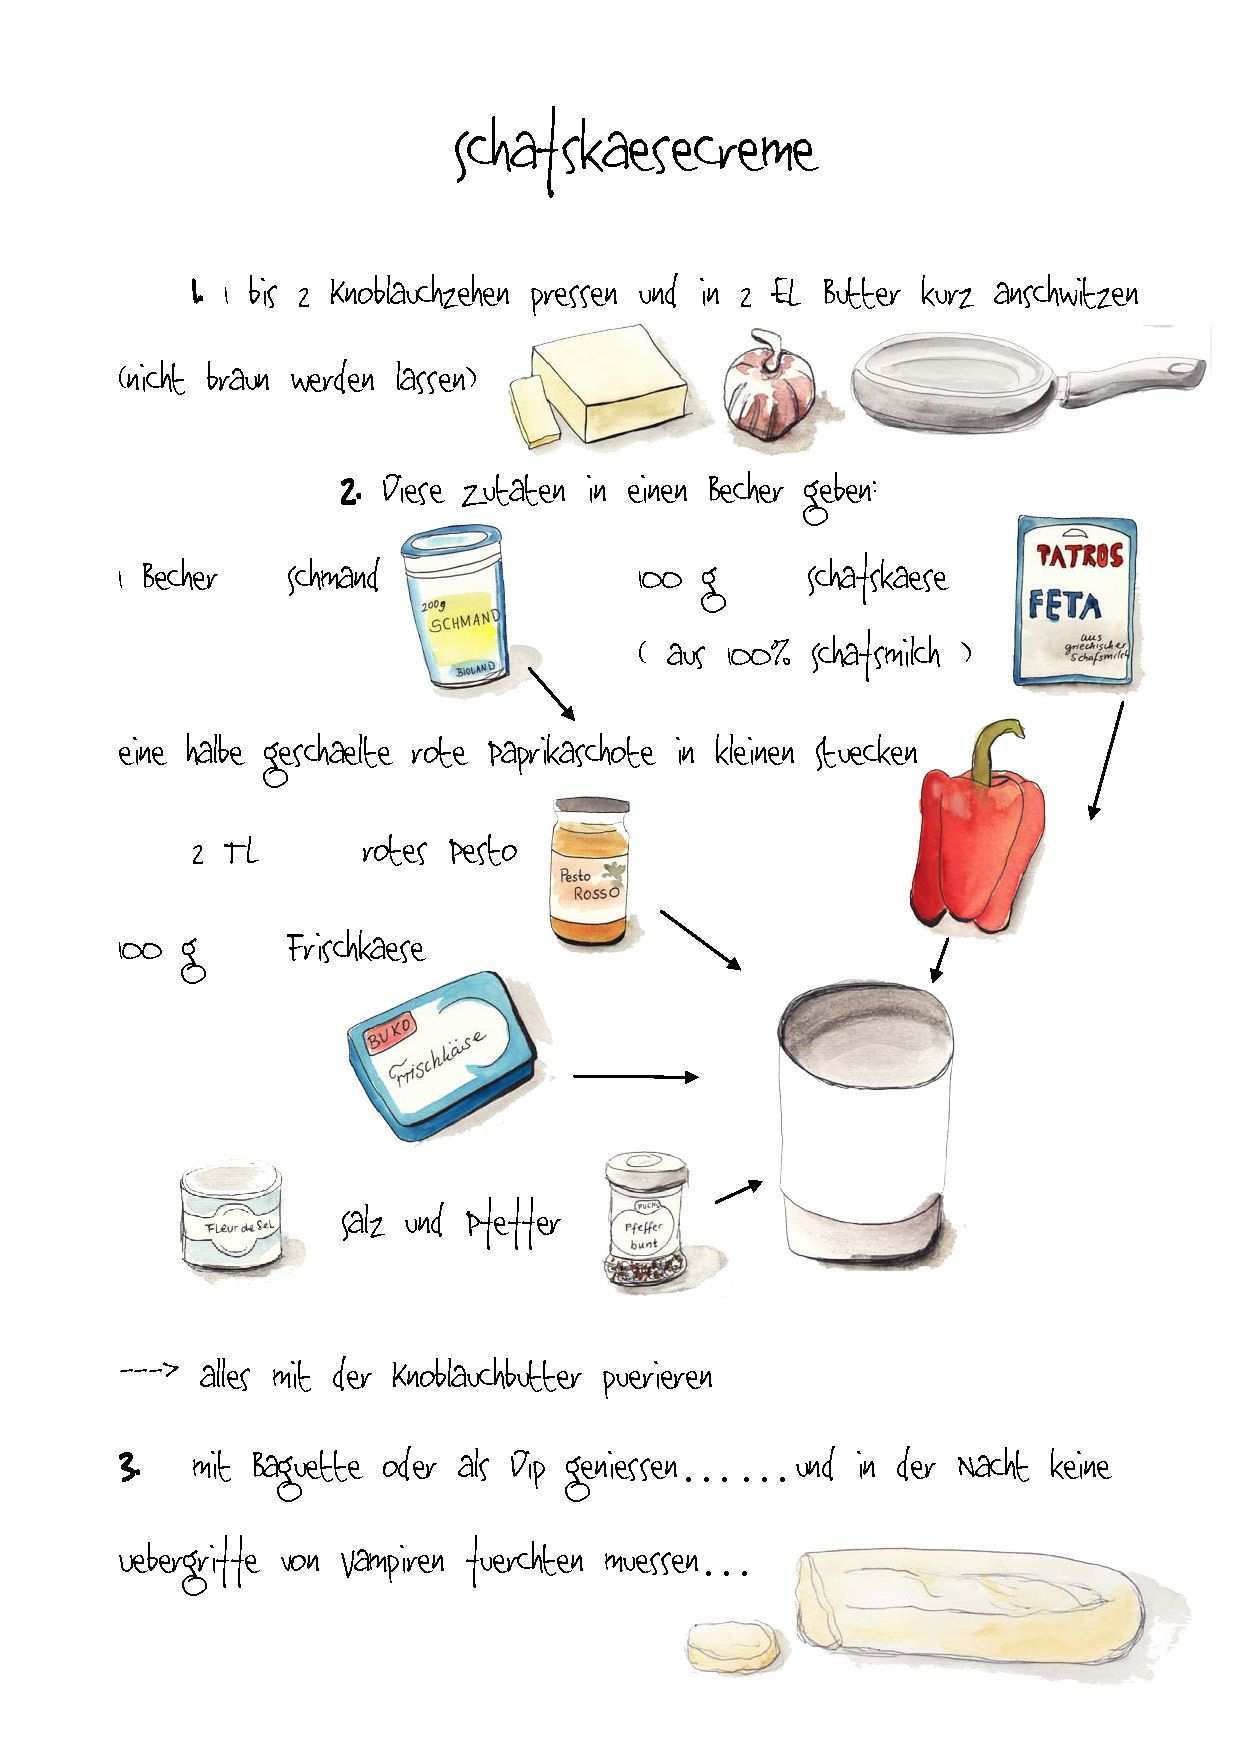 schafskaesecreme
1. 1 bis 2 Knoblauchzehen pressen und in 2 EL Butter kurz anschwitzen
(nicht braun werden lassen)
2. Diese Zutaten in einen Becher geben:
1 Becher schmand
200g
SCHMAND
BIOLAND
100 g schafskaese
( aus 100% schafsmilch )
PATROS
FETA
aus
griechischer
Schafsmilch
eine halbe geschaelte rote Paprikaschote in kleinen stuecken
2 TL rotes Pesto
Pesto
Rosso
100 g Frischkaese
BUKO
Frischkäse
Fleur de Sel
salz und Pfeffer
FUCHS
Pfeffer
bunt
----> alles mit der Knoblauchbutter puerieren
3. mit Baguette oder als Dip geniessen......und in der Nacht keine
uebergriffe von Vampiren fuerchten muessen...